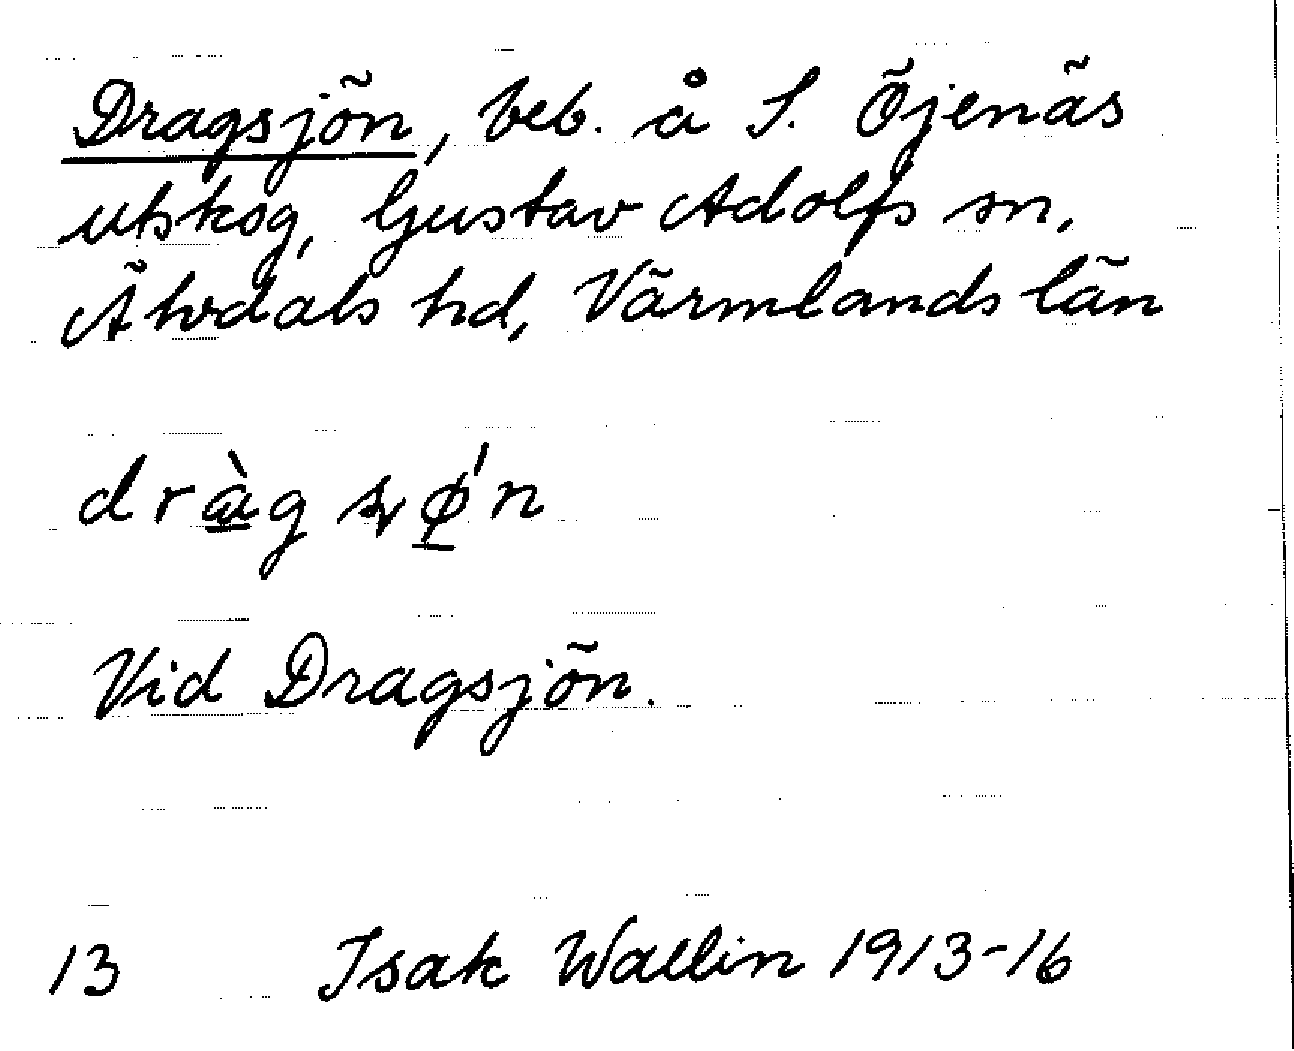 Dragsjön, beb. å S. Öjenäs
utskog, Gustav Adolfs sn,
Älvdals hd, Värmlands län
Vid Dragsjön.
13 Isak Wallin 1913-16